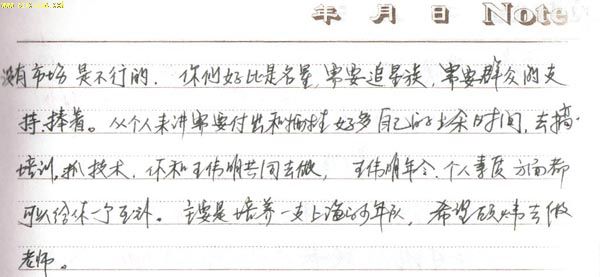 年 月 日 Note
没有市场是不行的. 你们好比是名星,需要追星族,需要群众的支
持,捧着。从个人来讲需要付出和牺牲好多自己的业余时间,去搞
培训,抓技术,你和王伟明共同去做, 王伟明年令.个人素质方面都
可以给你一个互补。主要是培养一支上海的少年队,希望硕炜去做
老师。